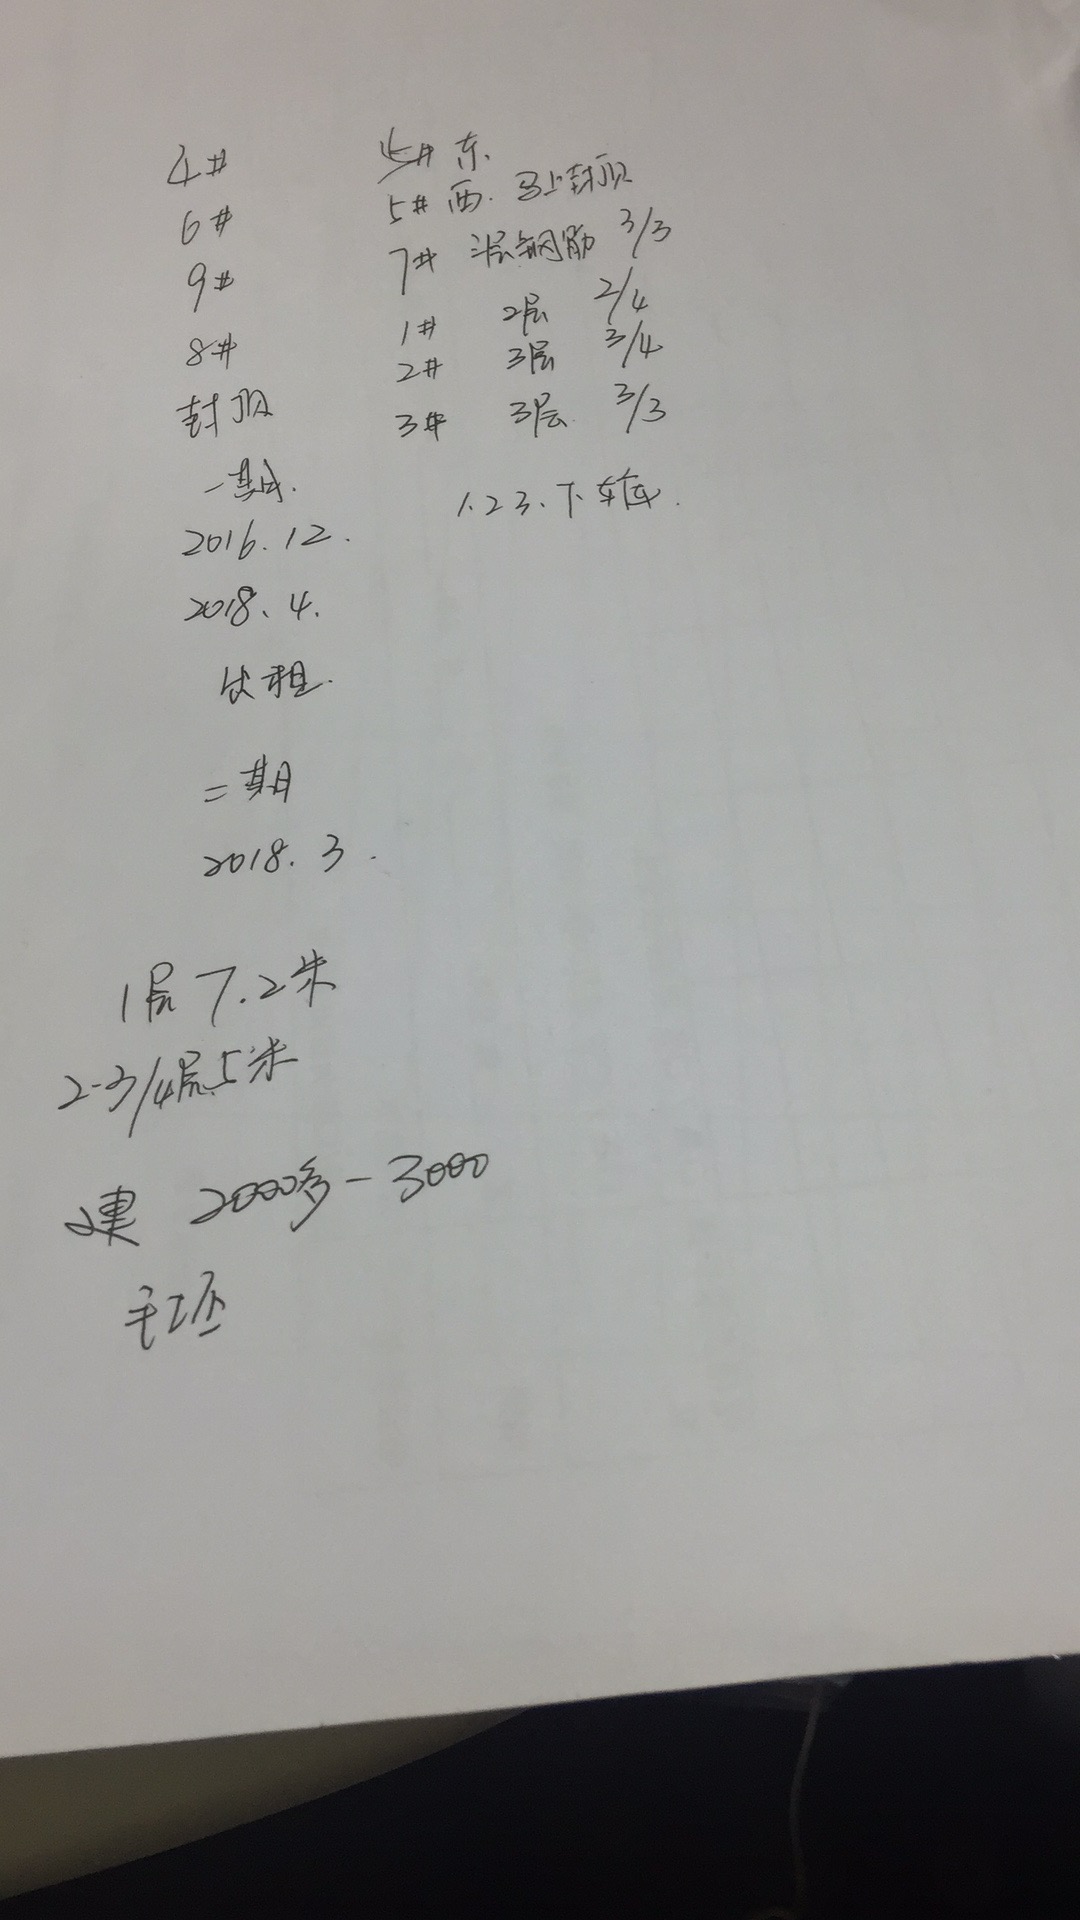 4#
6#
9#
8#
封顶
一期.
2016.12.
2018.4.
出租.
二期
2018.3.
5# 东.
5# 西. 马上封顶
7# 三层钢筋 3/3
1# 2层 2/4
2# 3层 3/4
3# 3层. 3/3
1.2 3.下车库.
1层 7.2米
2-3/4层5米
建 2000多-3000
毛坯